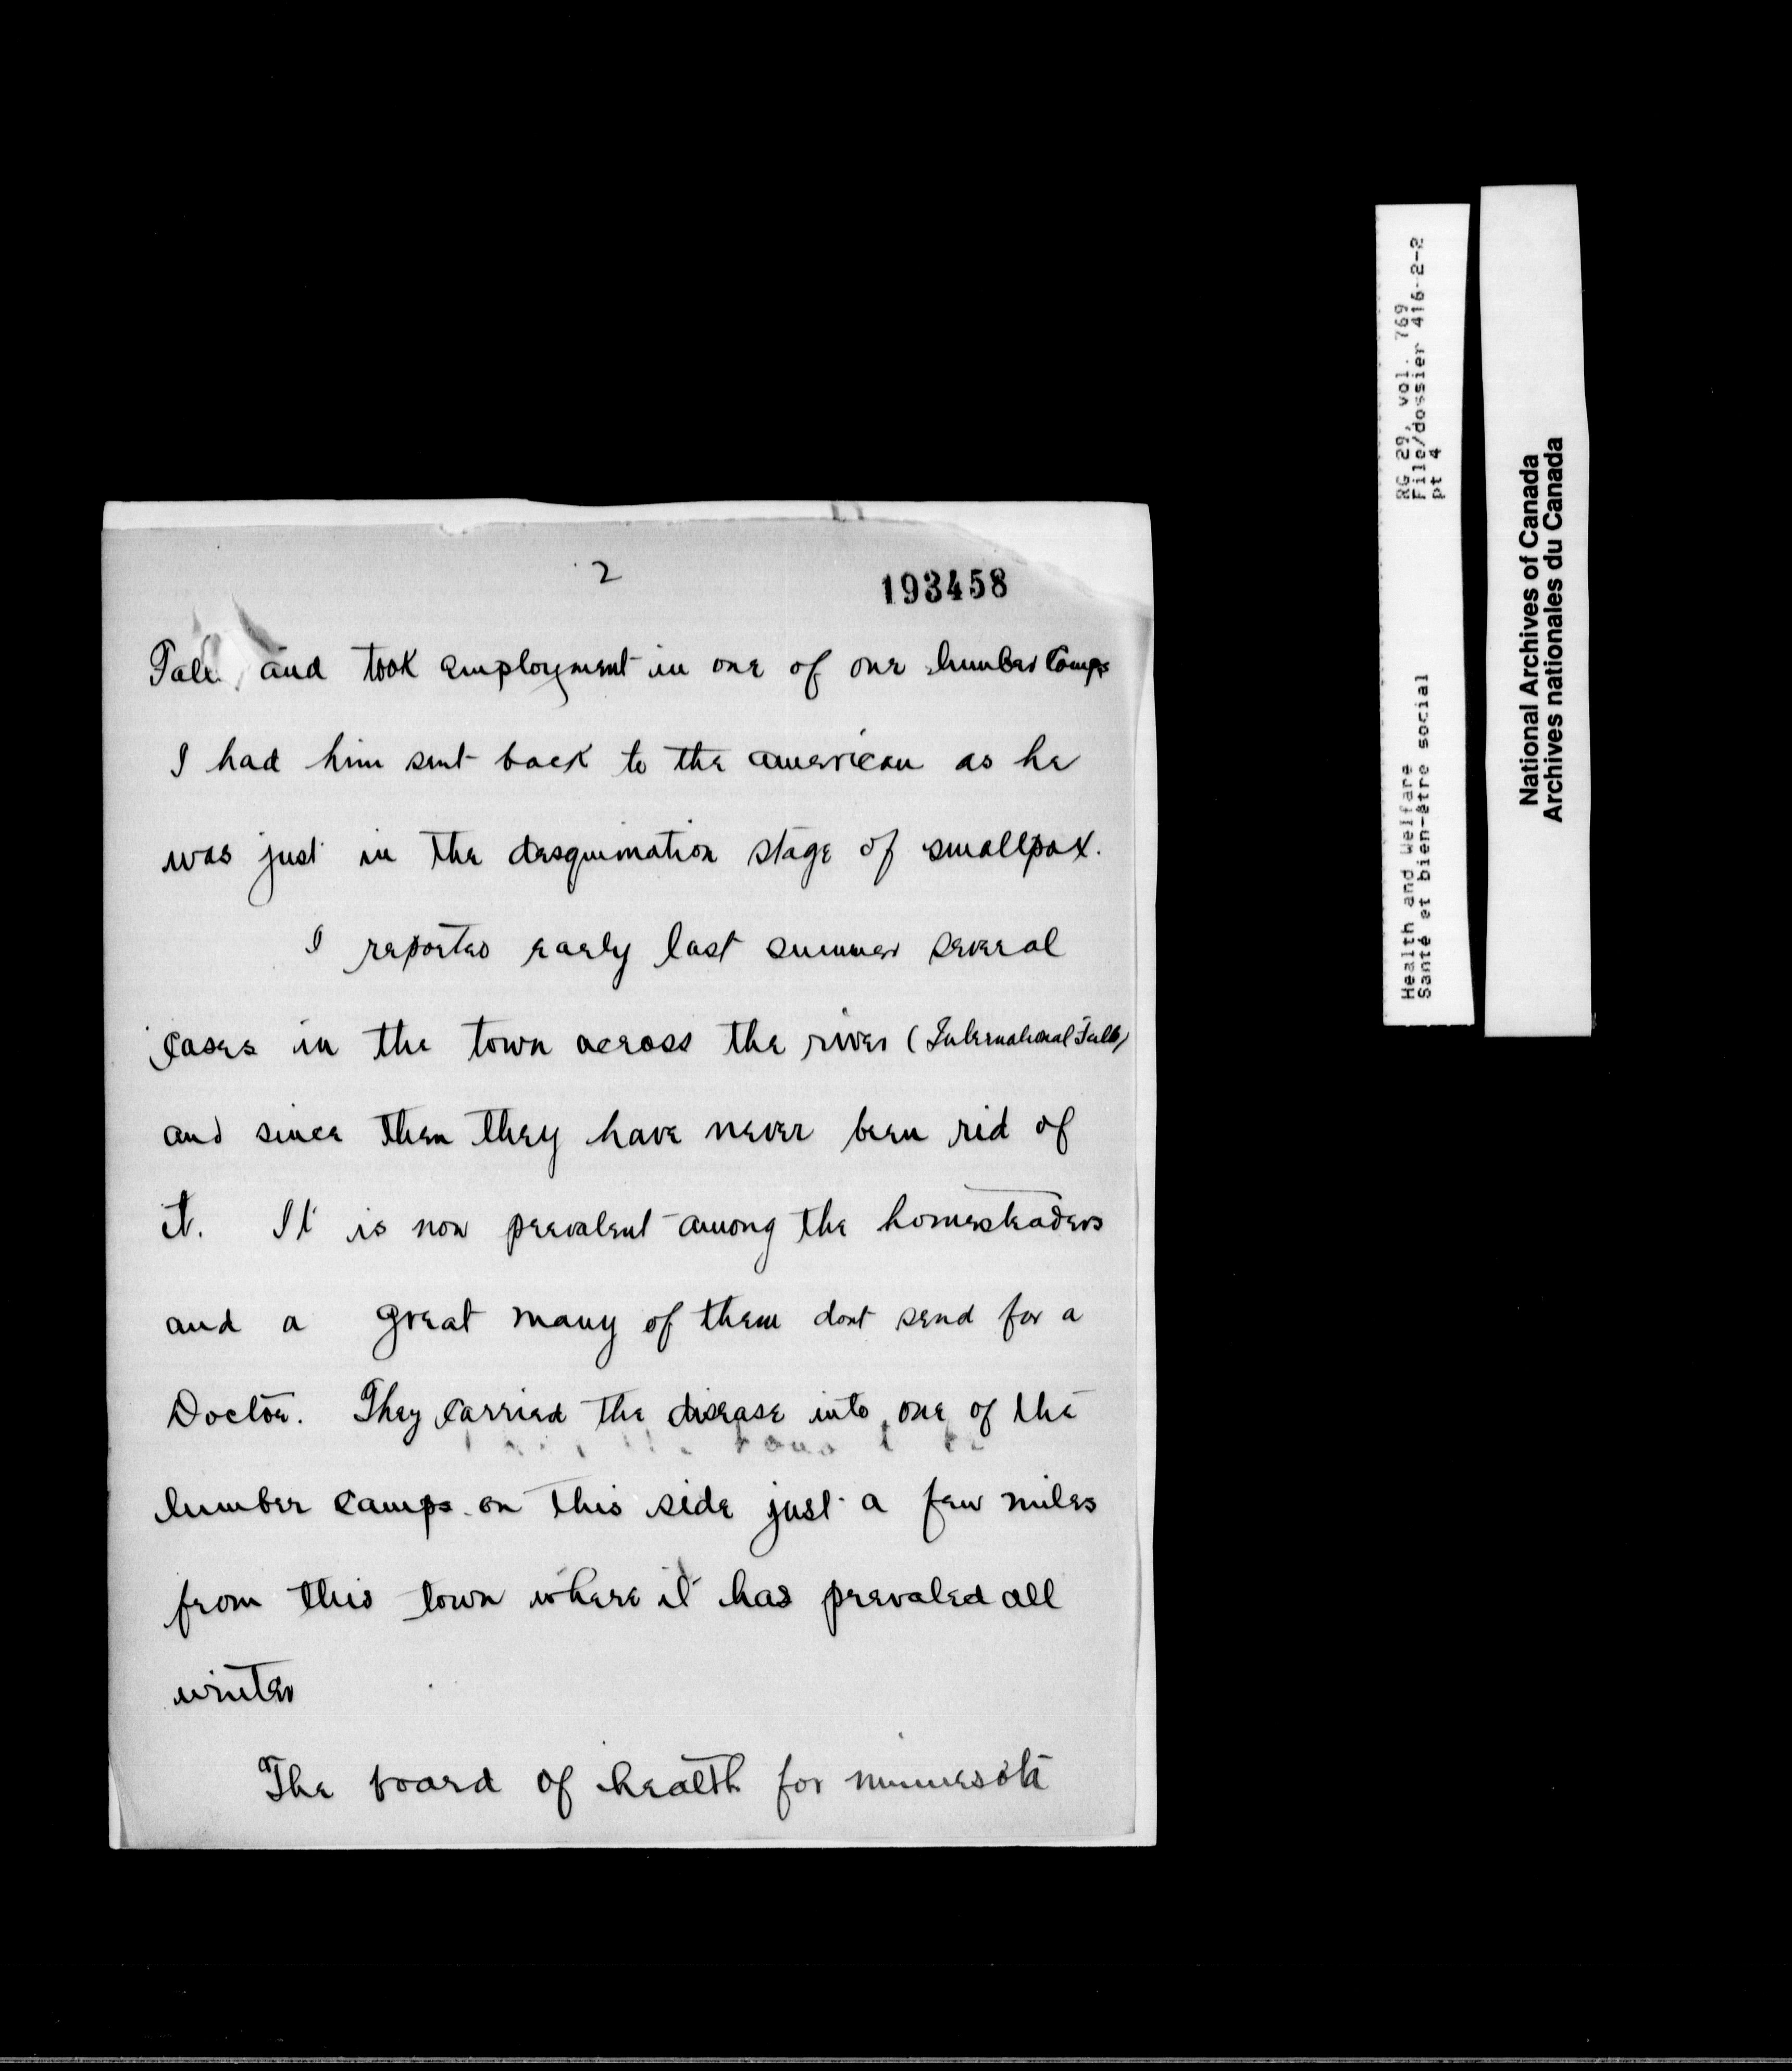 2
193458
Falls and took employment in one of our lumber Camps
I had him sent back to the american as he
was just in the desquimation stage of smallpox.
I reported early last summer several
cases in the town across the river (International Falls)
and since then they have never been rid of
it. It is now prevalent among the homesteaders
and a great many of them dont send for a
Doctor. They carried the disease into one of the
lumber camps on this side just a few miles
from this town where it has prevaled all
winter
The board of health for minnesota
RG 29, vol. 769
File/dossier 416-2-2
pt 4
Health and Welfare
Santé et bien-être social
National Archives of Canada
Archives nationales du Canada